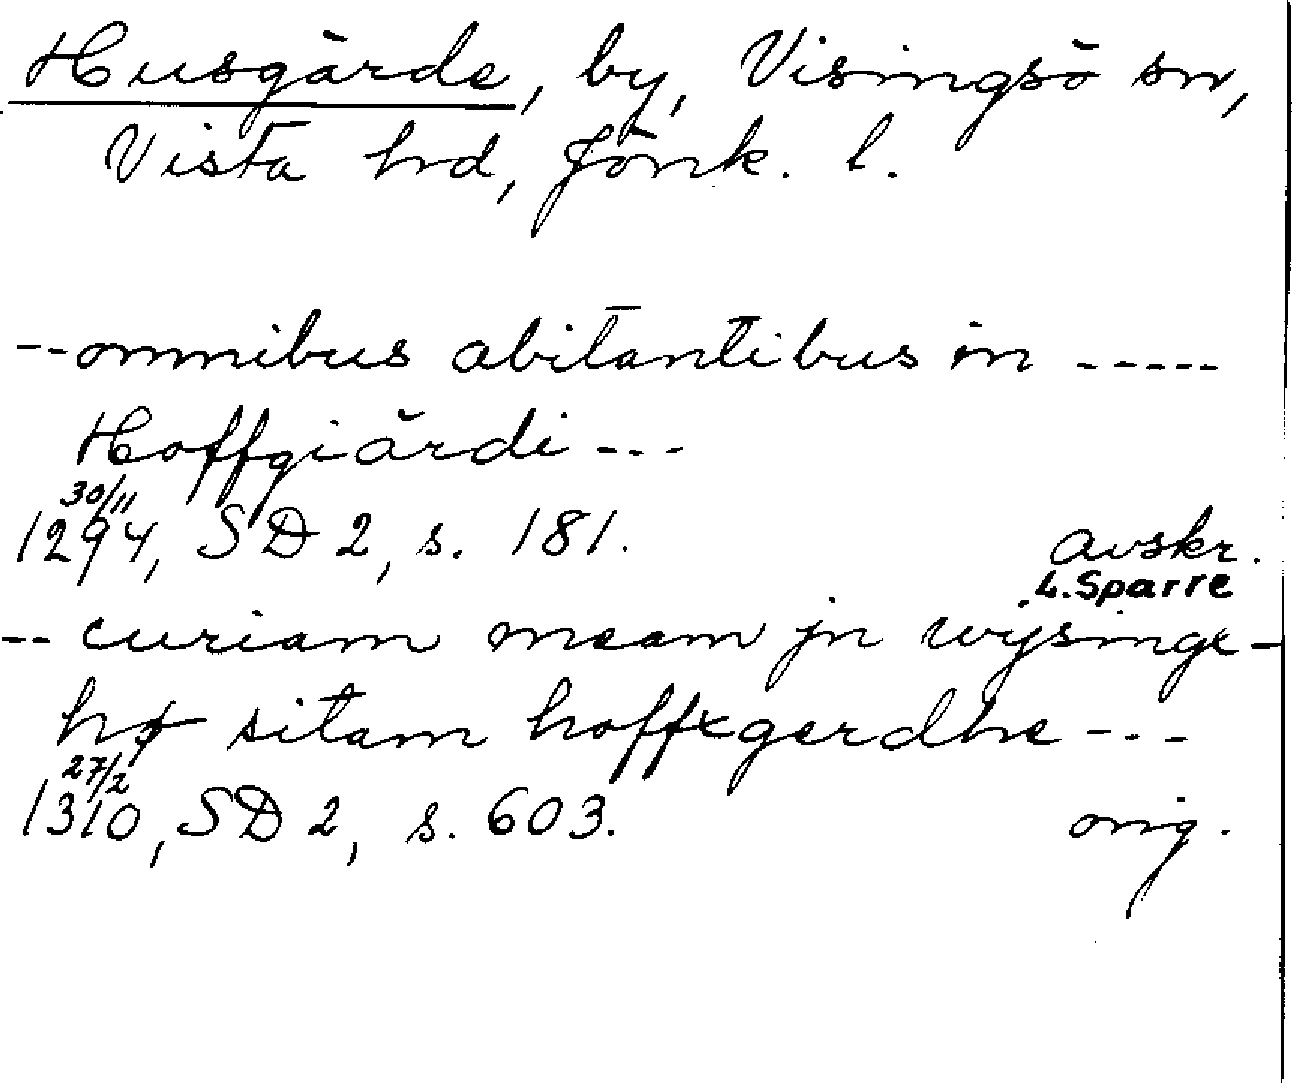 Husgärde, by, Visingsö sn,
Vista hd, Jönk. l.
--omnibus abitantibus in -----
Hoffgiärdi ---
30/11
1294, SD 2, s. 181.
avskr.
L. Sparre
-- curiam meam jn wysinge-
hø sitam hoffxgerdhe ---
27/2
1310, SD 2, s. 603.
orig.